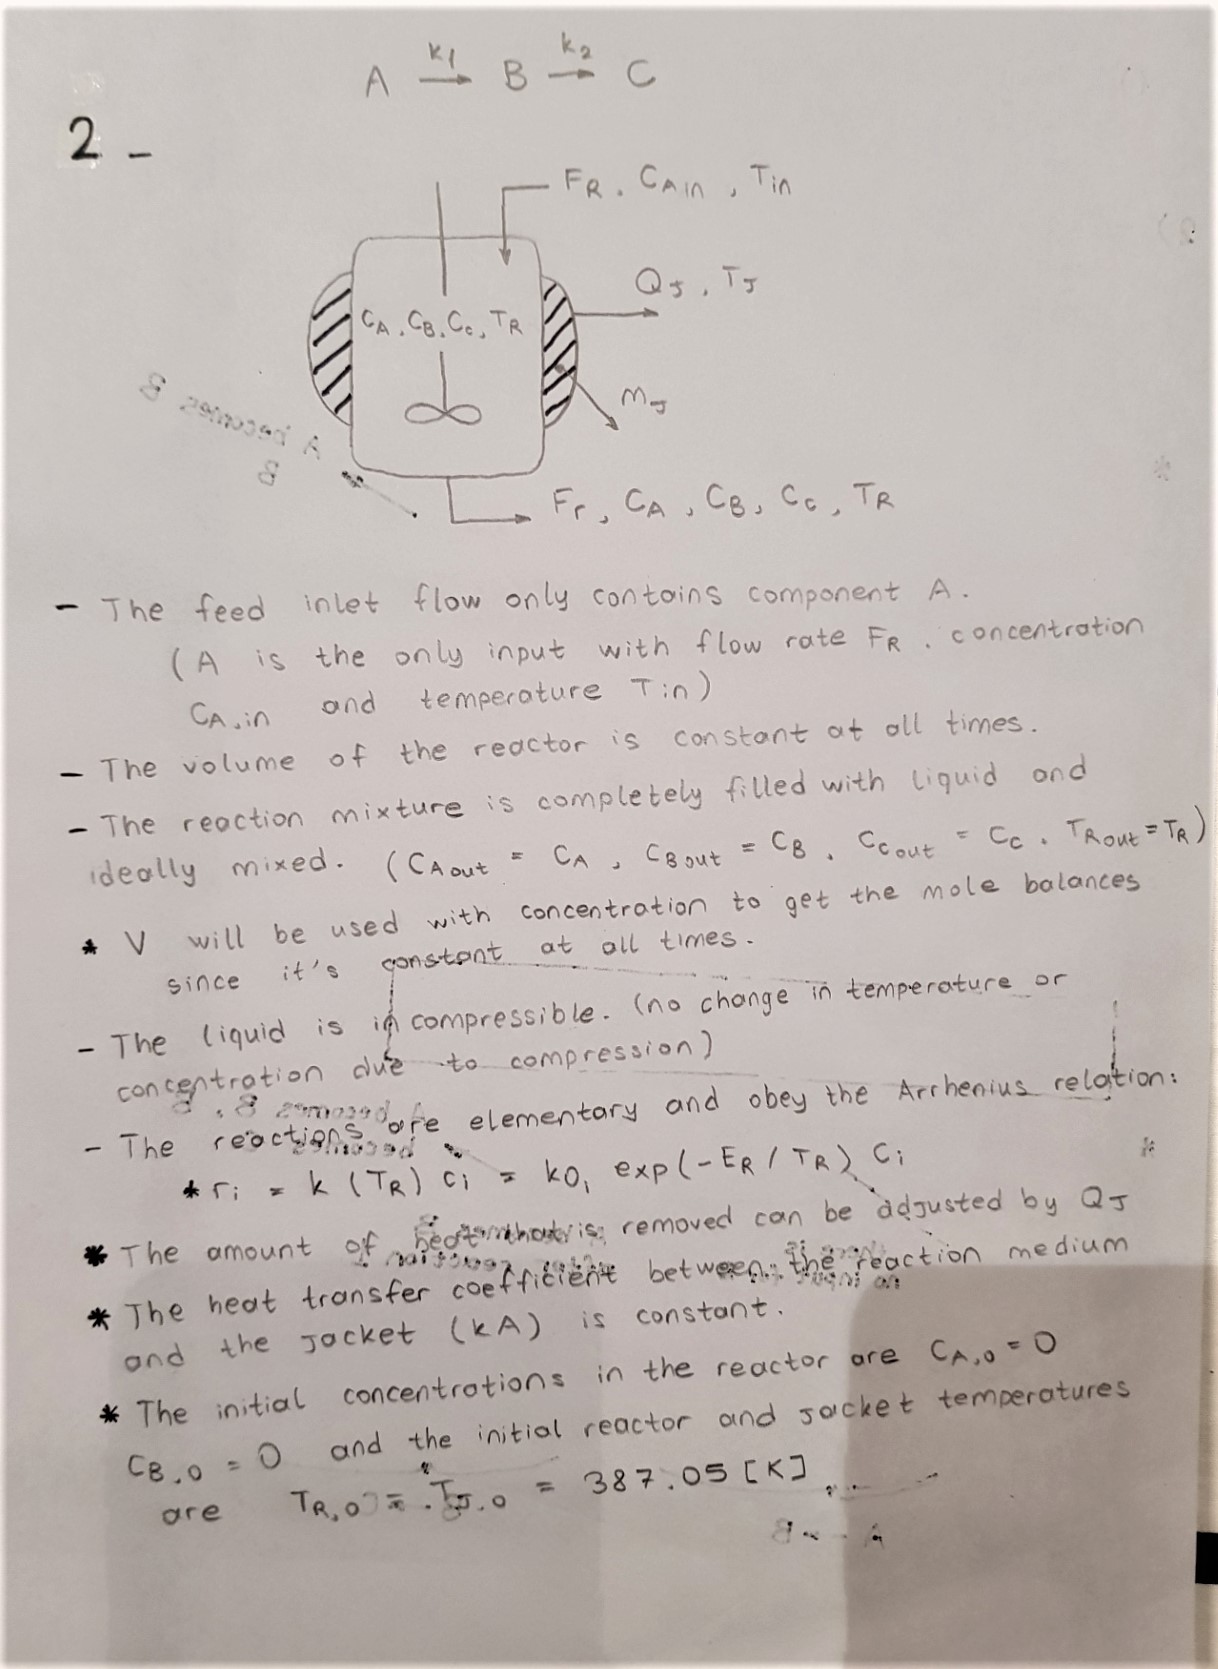 A k1 → B k2 → C
2 -
FR, CAin, Tin
QJ, TJ
CA, CB, Cc, TR
mJ
Fr, CA, CB, Cc, TR
- The feed inlet flow only contains component A.
(A is the only input with flow rate FR, concentration
CA,in and temperature Tin)
- The volume of the reactor is constant at all times.
- The reaction mixture is completely filled with liquid and
ideally mixed. (CAout = CA, CBout = CB, Ccout = Cc, TRout = TR)
* V will be used with concentration to get the mole balances
since it's constant at all times.
- The liquid is incompressible. (no change in temperature or
concentration due to compression)
- The reactions are elementary and obey the Arrhenius relation:
* ri = k (TR) ci = k0,i exp(-ER / TR) Ci
* The amount of heat that is removed can be adjusted by QJ
* The heat transfer coefficient between the reaction medium
and the jacket (kA) is constant.
* The initial concentrations in the reactor are CA,0 = 0
CB,0 = 0 and the initial reactor and jacket temperatures
are TR,0 = TJ,0 = 387.05 [K]